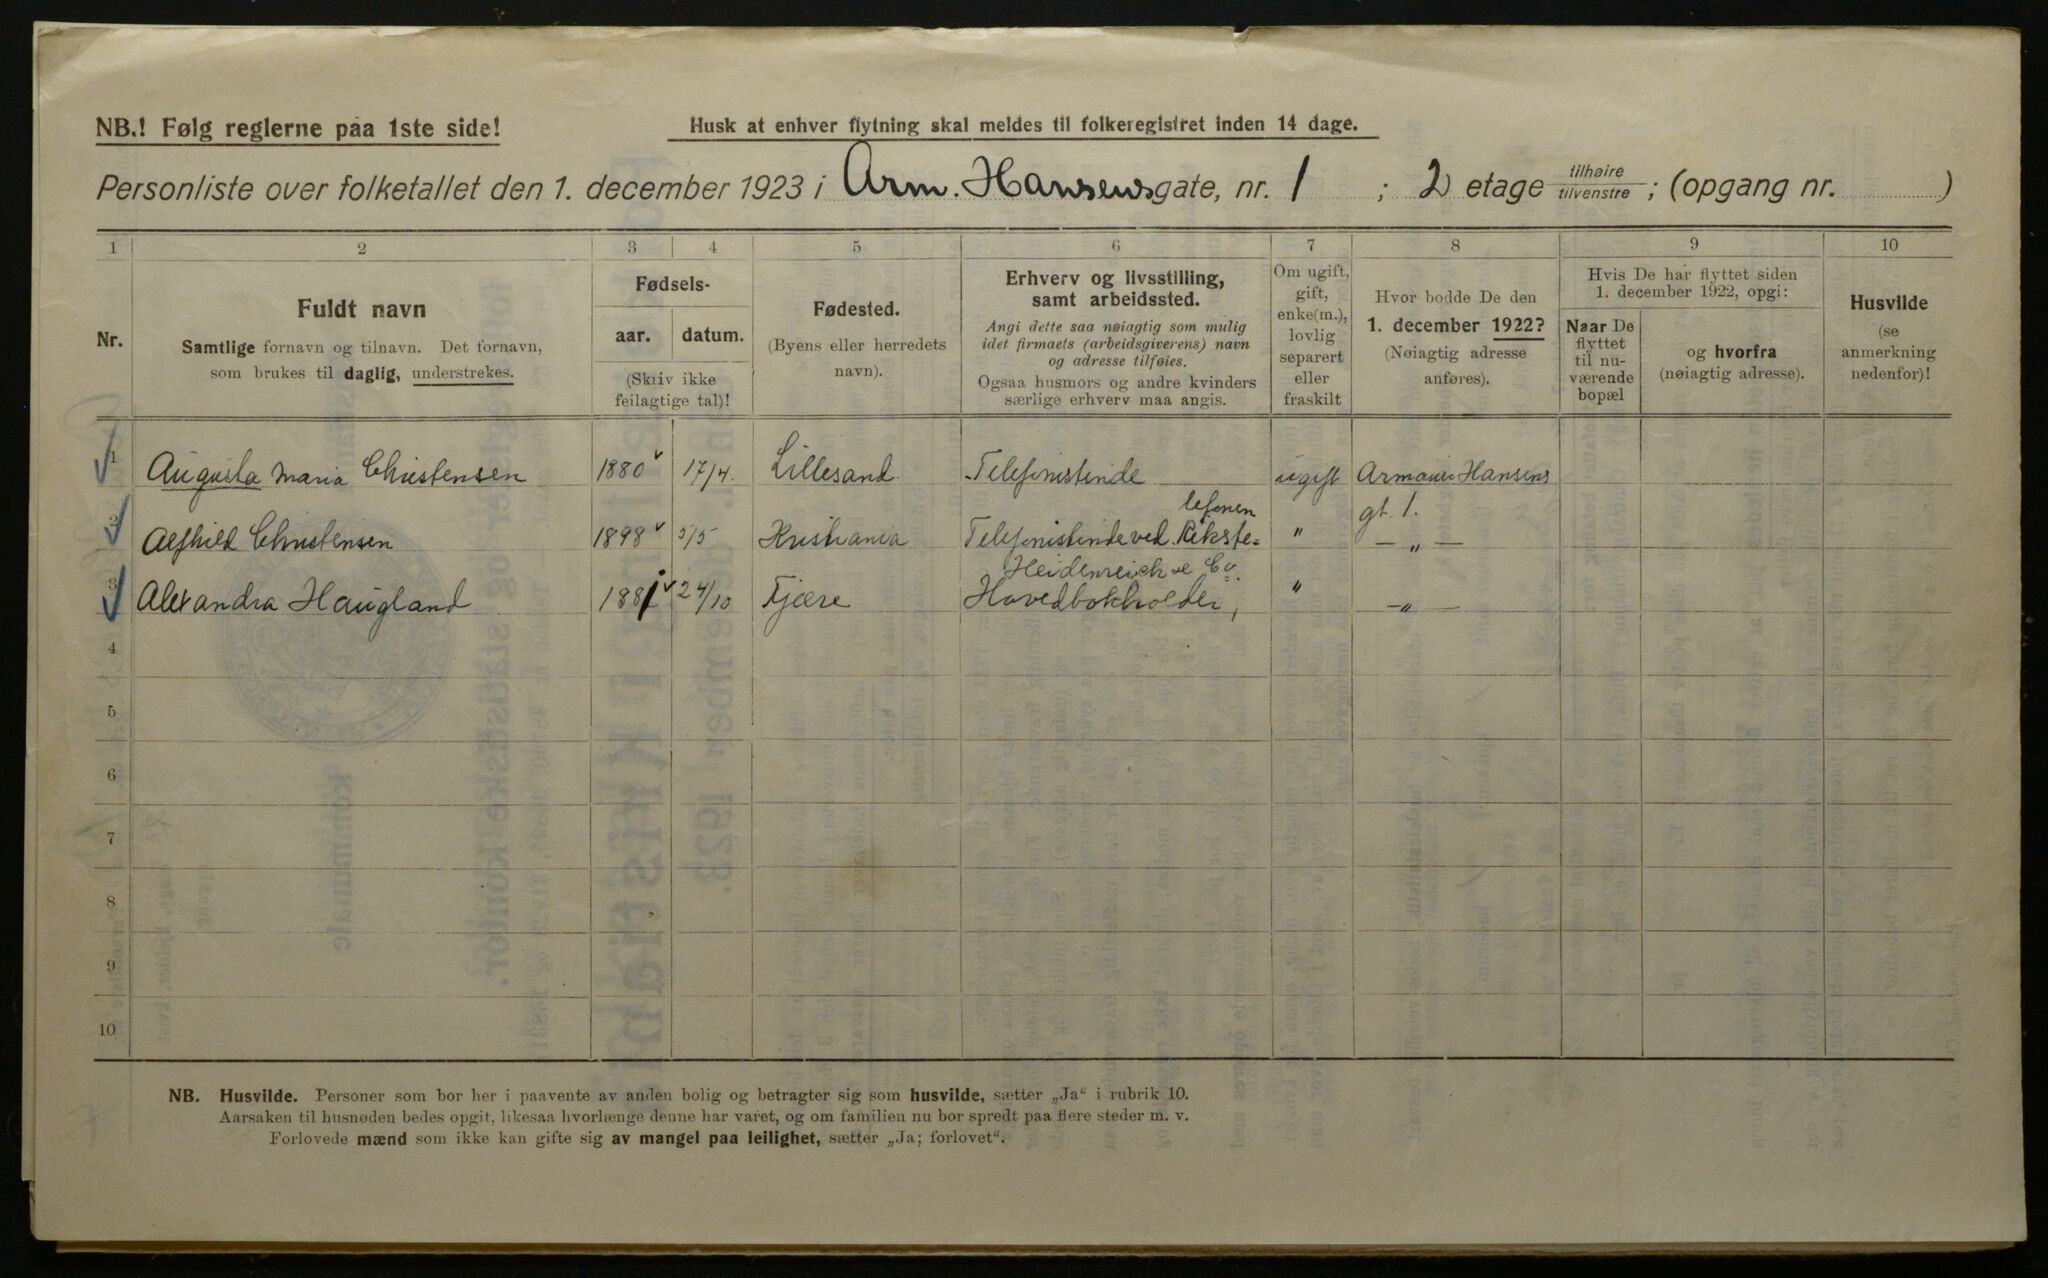 NB.! Følg reglerne paa 1ste side!
Husk at enhver flytning skal meldes til folkeregistret inden 14 dage.
Personliste over folketallet den 1. december 1923 i Arm. Hansens gate, nr. 1 ; 2 etage tilhøire tilvenstre ; (opgang nr. )
1 2 3 4 5 6 7 8 9 10
Nr.
Fuldt navn
Samtlige fornavn og tilnavn. Det fornavn,
som brukes til daglig, understrekes.
Fødsels-
aar. datum.
(Skriv ikke
feilagtige tal)!
Fødested.
(Byens eller herredets
navn).
Erhverv og livsstilling,
samt arbeidssted.
Angi dette saa nøiagtig som mulig
idet firmaets (arbeidsgiverens) navn
og adresse tilføies.
Ogsaa husmors og andre kvinders
særlige erhverv maa angis.
Om ugift,
gift,
enke(m.),
lovlig
separert
eller
fraskilt
Hvor bodde De den
1. december 1922?
(Nøiagtig adresse
anføres).
Hvis De har flyttet siden
1. december 1922, opgi:
Naar De
flyttet
til nu-
værende
bopæl
og hvorfra
(nøiagtig adresse).
Husvilde
(se
anmerkning
nedenfor)!
1 Augusta Maria Christensen 1880 17/4. Lillesand Telefonistinde ugift Armauer Hansens
gt. 1.
lefonen
2 Alfhild Christensen 1898 5/5 Kristiania Telefonistinde ved Rikste= " — " —
Heidenreich & Co.
3 Alexandra Haugland 1881 24/10 Fjære Hovedbokholder, " — " —
4
5
6
7
8
9
10
NB. Husvilde. Personer som bor her i paavente av anden bolig og betragter sig som husvilde, sætter „Ja" i rubrik 10.
Aarsaken til husnøden bedes opgit, likesaa hvorlænge denne har varet, og om familien nu bor spredt paa flere steder m. v.
Forlovede mænd som ikke kan gifte sig av mangel paa leilighet, sætter „Ja; forlovet".